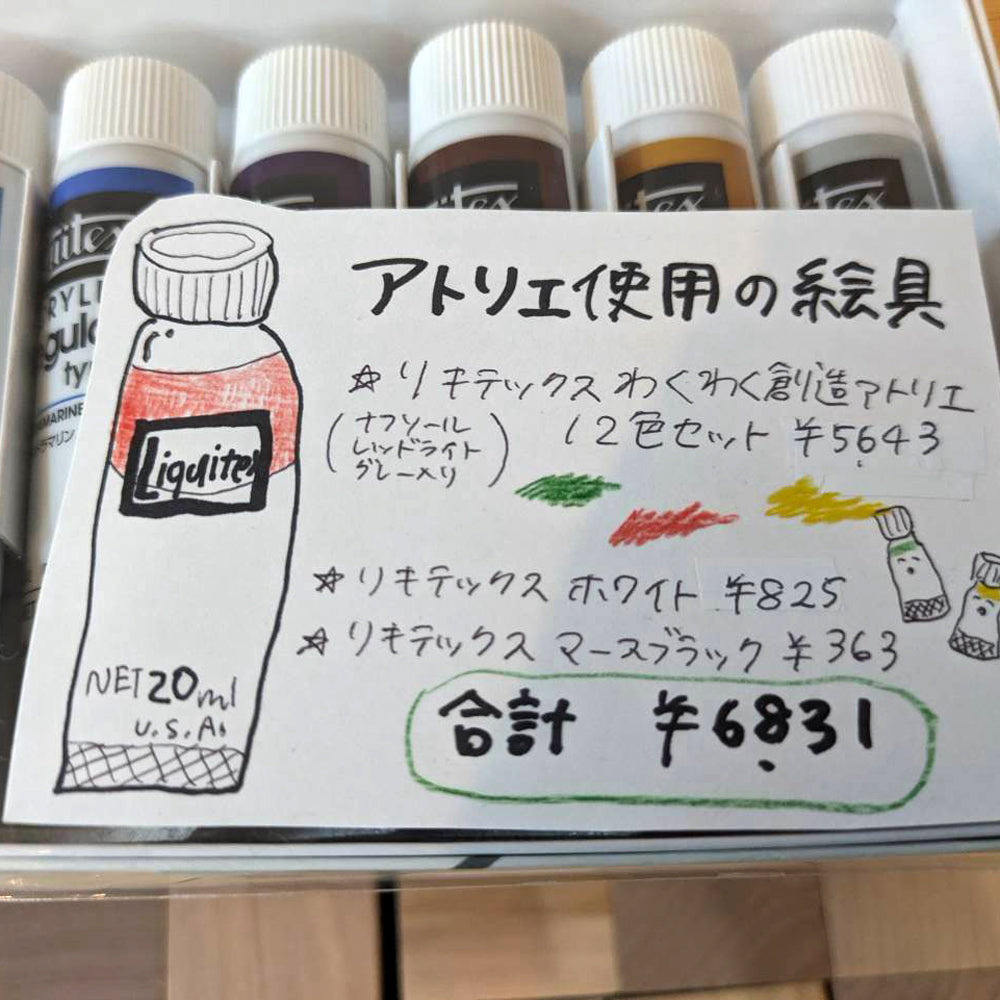 アトリエ使用の絵具
☆リキテックス わくわく創造アトリエ
(ナフソール
レッドライト
グレー入り)
12色セット ¥5643
☆リキテックス ホワイト ¥825
☆リキテックス マースブラック ¥363
合計 ¥6831
Liquitex
NET 20ml
U.S.A.